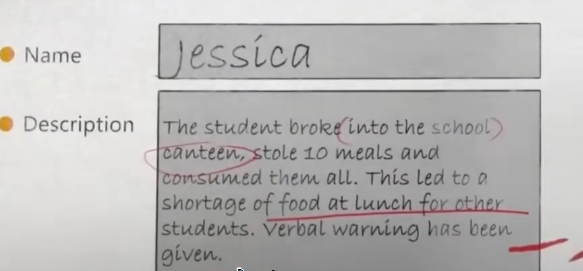 Name
Jessica
Description
The student broke into the school
canteen, stole 10 meals and
consumed them all. This led to a
shortage of food at lunch for other
students. Verbal warning has been
given.